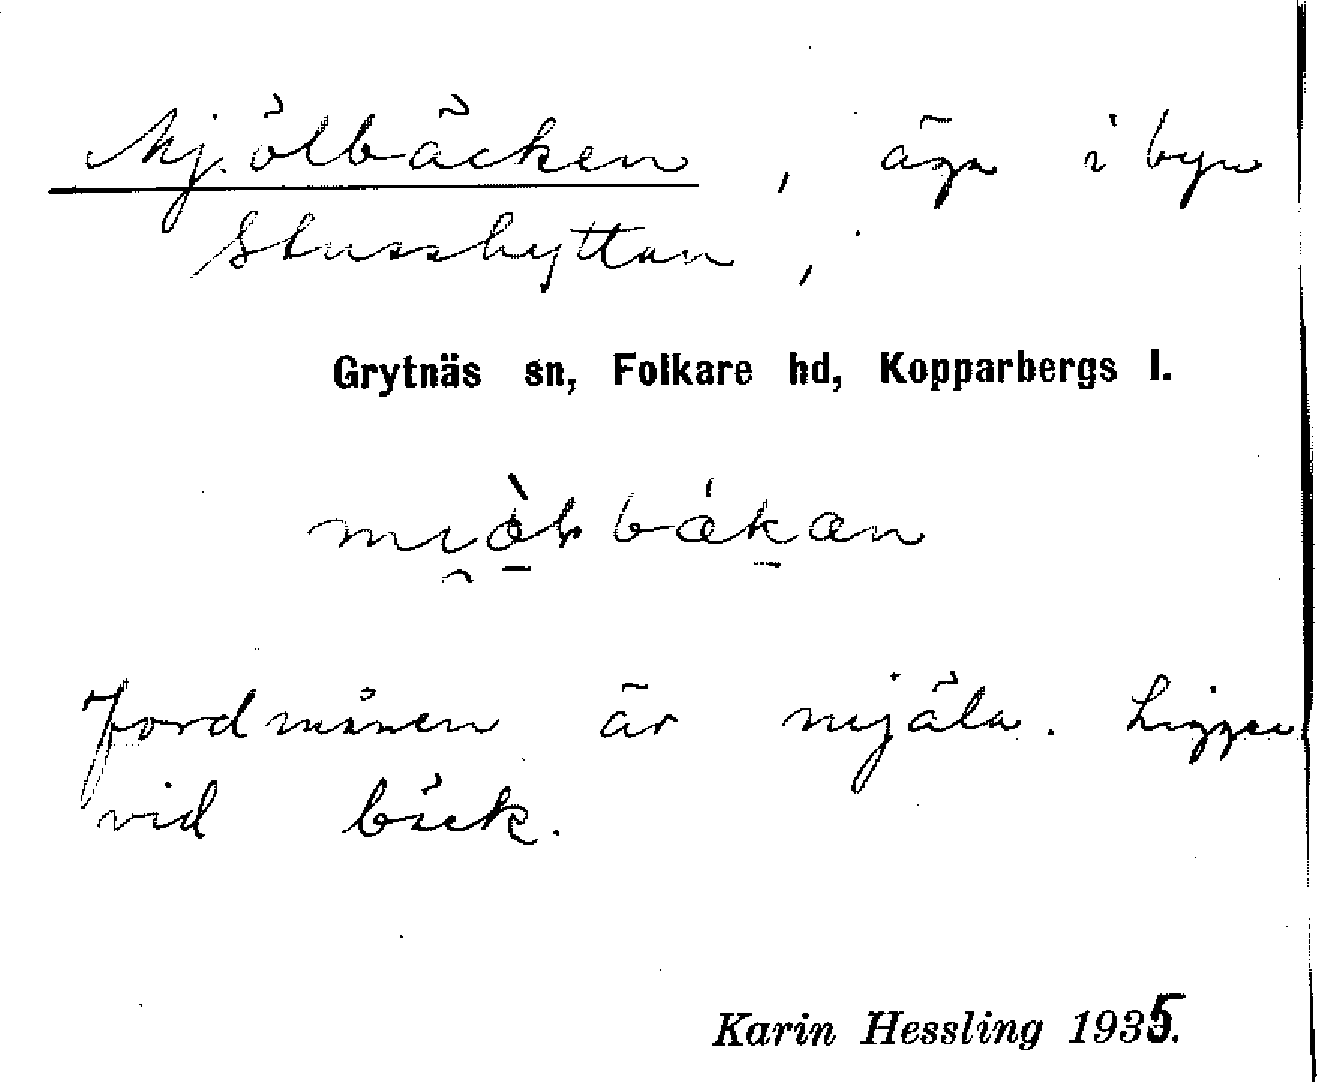 Mjölbäcken, äga i byn
Stusshyttan,
Grytnäs sn, Folkare hd, Kopparbergs l.
Jordmånen är mjäla. Ligger
vid bäck.
Karin Hessling 1935.